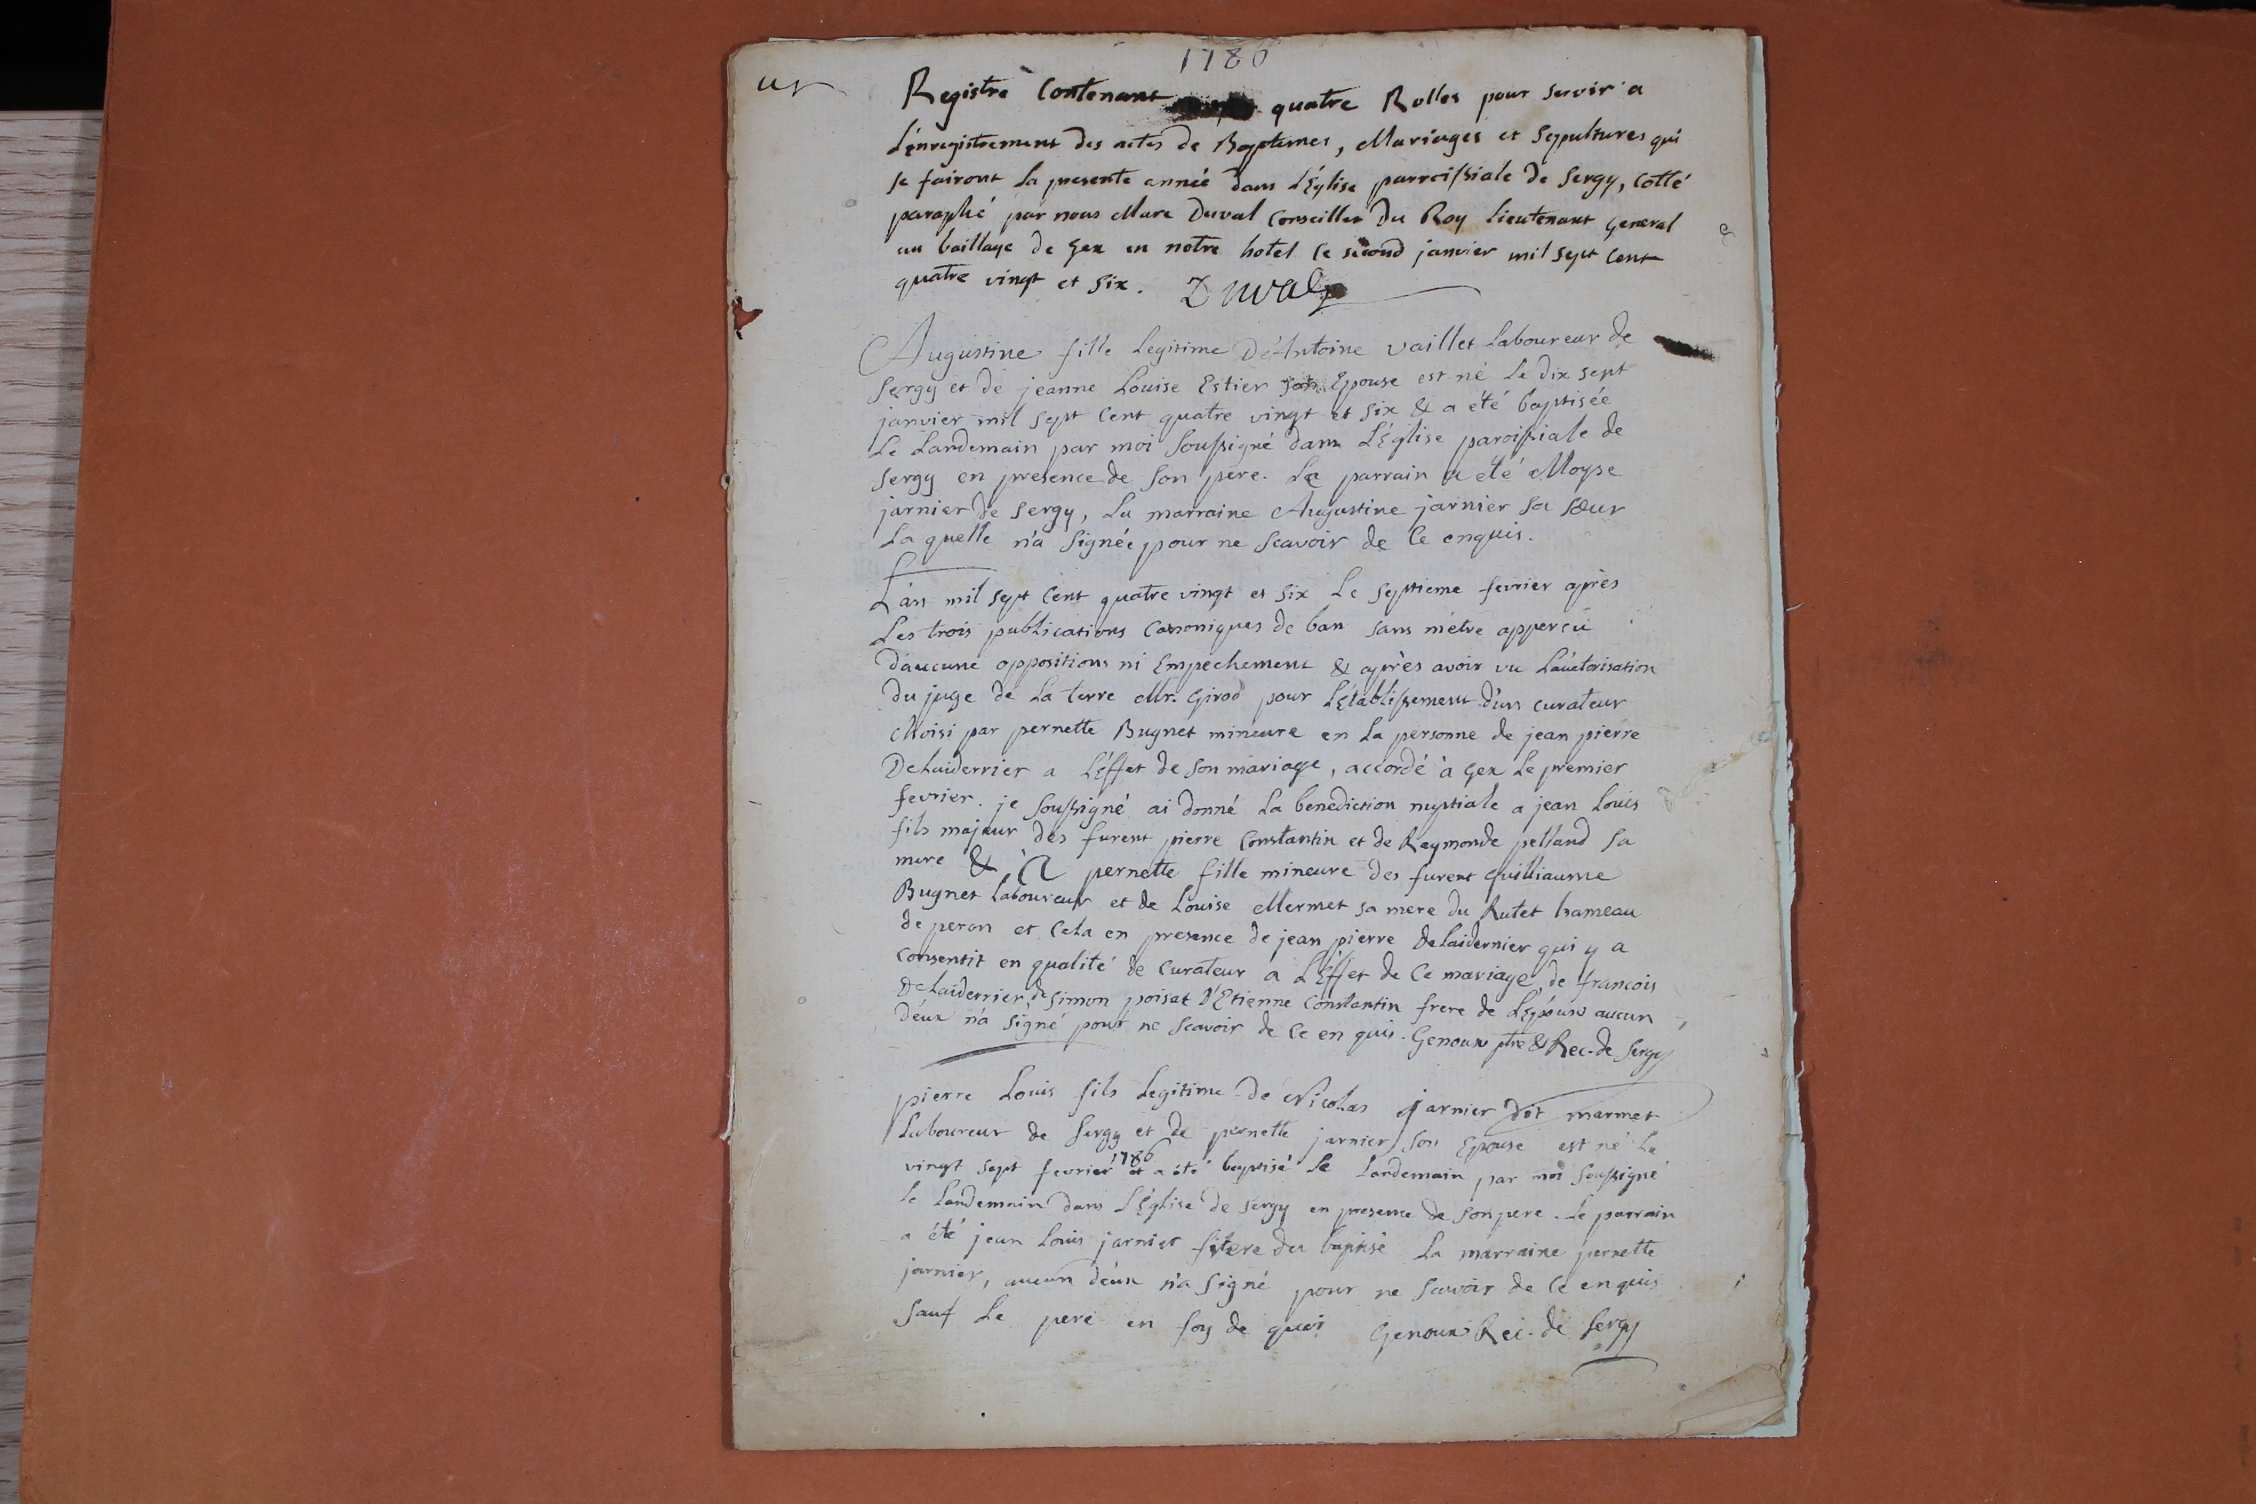 1786
Registre Contenant quatre Rolles pour servir a
L'enregistrement des actes de Baptemes, Mariages et Sepultures qui
se fairont la presente année dans L'Église parroissiale de Sergy, Cotté
paraphé par nous Marc Duval Conseiller Du Roy Lieutenant General
au baillage de Gex en notre hotel le second janvier mil sept Cent
quatre vingt et six. Duval
Augustine fille Legitime D'Antoine Vaillet Laboureur de
Sergy et de jeanne Louise Estier son Epouse est né Le dix sept
janvier mil sept Cent quatre vingt et six & a été baptisée
Le Landemain par moi soussigné dans L'Église paroissiale de
Sergy en presence de son pere. Le parrain a été Moyse
jarnier de Sergy, La marraine Augustine jarnier sa sœur
La quelle n'a signée pour ne scavoir de Ce enquis.
L'an mil sept Cent quatre vingt et six Le septieme fevrier après
Les trois publications Canoniques de ban sans m'etre apperçu
d'aucune oppositions ni Empechement & après avoir vu L'auctorisation
du juge de La terre Mr. Girod pour L'Etablissement d'un curateur
choisi par pernette Bugnet mineure en La personne de jean pierre
Delaiderrier a L'Effet de son mariage, accordé à Gex Le premier
fevrier. je soussigné ai donné La benediction nuptiale a jean Louis
fils majeur des furent pierre Constantin et de Reymonde pelland sa
mere & A pernette fille mineure des furent Guilliaume
Bugnet Laboureur et de Louise Mermet sa mere du Rutet hameau
de peron et Cela en presence de jean pierre delaidernier qui y a
Consentit en qualité de Curateur a L'Effet de Ce mariage, de francois
Delaiderrier, de Simon poisat d'Etienne Constantin frere de L'Epoux aucun
d'eux n'a signé pour ne scavoir de Ce en quis. Genoux ptre & Rec. de Sergy
pierre Louis fils Legitime de Nicolas Jarnier dit marmet
Laboureur de Sergy et de pernette jarnier son Epouse est né Le
vingt sept fevrier 1786 et a été baptisé Le Landemain par moi soussigné
le Landemain dans L'Église de Sergy en presence de son pere. Le parrain
a été jean Louis jarnier frere du baptisé La marraine pernette
jarnier, aucun d'eux n'a signé pour ne scavoir de Ce enquis
sauf Le pere en foy de quoi Genoux Rec. de Sergy